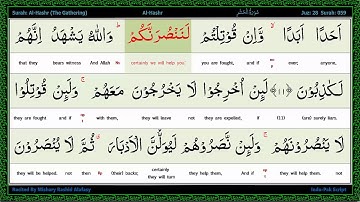 Surah: Al-Hashr (The Gathering) Al-Hashr سُوْرَةُ الْحَشْرِ Juz: 28 Surah: 059
اَحَدًا اَبَدًا ۙ وَّاِنْ قُوْتِلْتُمْ لَنَنْصُرَنَّكُمْ ؕ وَاللّٰهُ يَشْهَدُ اِنَّهُمْ
anyone, ever, and if you are fought, certainly we will help you. And Allah bears witness that they
لَكٰذِبُوْنَ ﴿۱۱﴾ لَئِنْ اُخْرِجُوْا لَا يَخْرُجُوْنَ مَعَهُمْ ۚ وَلَئِنْ قُوْتِلُوْا
(are) surely liars. If they are expelled, not they will leave with them, and if they are fought
لَا يَنْصُرُوْنَهُمْ ۚ وَلَئِنْ نَّصَرُوْهُمْ لَيُوَلُّنَّ الْاَدْبَارَ ۟ ثُمَّ لَا يُنْصَرُوْنَ
not they will help them. And if they help them, certainly they will turn (their) backs; then not they will be helped.
Recited By Mishary Rashid Alafasy Indo-Pak Script